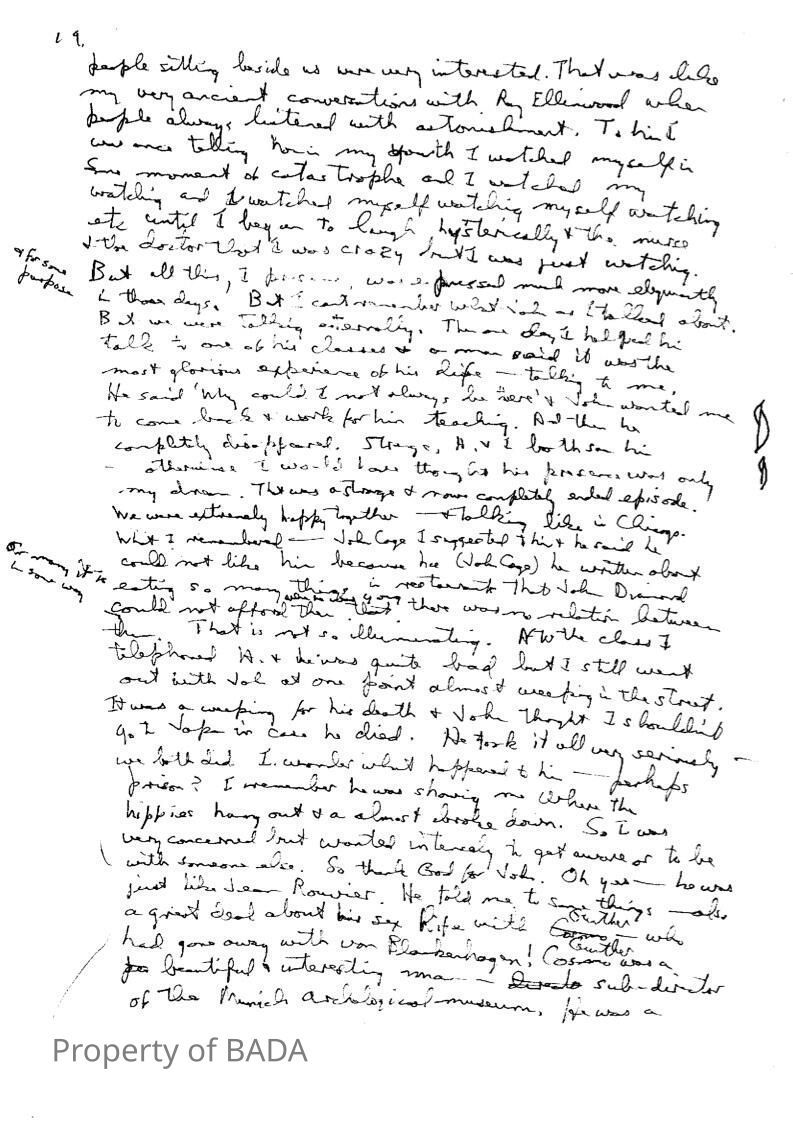 19.
people sitting beside us were very interested. That was like
my very ancient conversations with Ray Ellinwood when
people always listened with astonishment. To him I
was once telling how in my youth I watched myself in
some moment of catastrophe and I watched my
watching and I watched myself watching myself watching
etc until I began to laugh hysterically & the nurse
& the doctor that I was crazy but I was just watching.
& for some
purpose
But all this, I presume, was expressed much more eloquently
in those days. But I cant remember what Joh and I talked about.
But we were talking eternally. Then one day I helped him
talk to one of his classes & a man said it was the
most glorious experience of his life — talking to me.
He said 'Why could I not always be here' & John wanted me
to come back & work for him teaching. And then he
completely disappeared. Strange, H. & I both saw him
— otherwise I would have thought his presence was only
my dream. That was a strange & now completely ended episode.
We were extremely happy together — & talking like in Chicago.
What I remembered — John Cage I suggested this & he said he
could not like him because he (John Cage) he written about
or many it is
in some way
eating so many things in restaurants that John Diamond
could not afford them that there was no relation between
them. That is not so illuminating. After the class I
telephoned H. & he was quite bad but I still went
out with Joh at one point almost weeping in the street.
It was a weeping for his death & John thought I shouldn't
go to Japan in case he died. He took it all very seriously —
we both did. I wonder what happened to him — perhaps
prison? I remember he was showing me where the
hippies hang out & a almost broke down. So I was
very concerned but wanted intensely to get away or to be
with someone else. So thank God for Joh. Oh yes — he was
just like Jean Rouvier. He told me to some things — also
a great deal about his sex life with Cosmo Gunther who
had gone away with von Blankenhagen! Cosmo Gunther was a
beautiful & interesting man — directo sub-director
of the Munich archological museum. He was a
Property of BADA